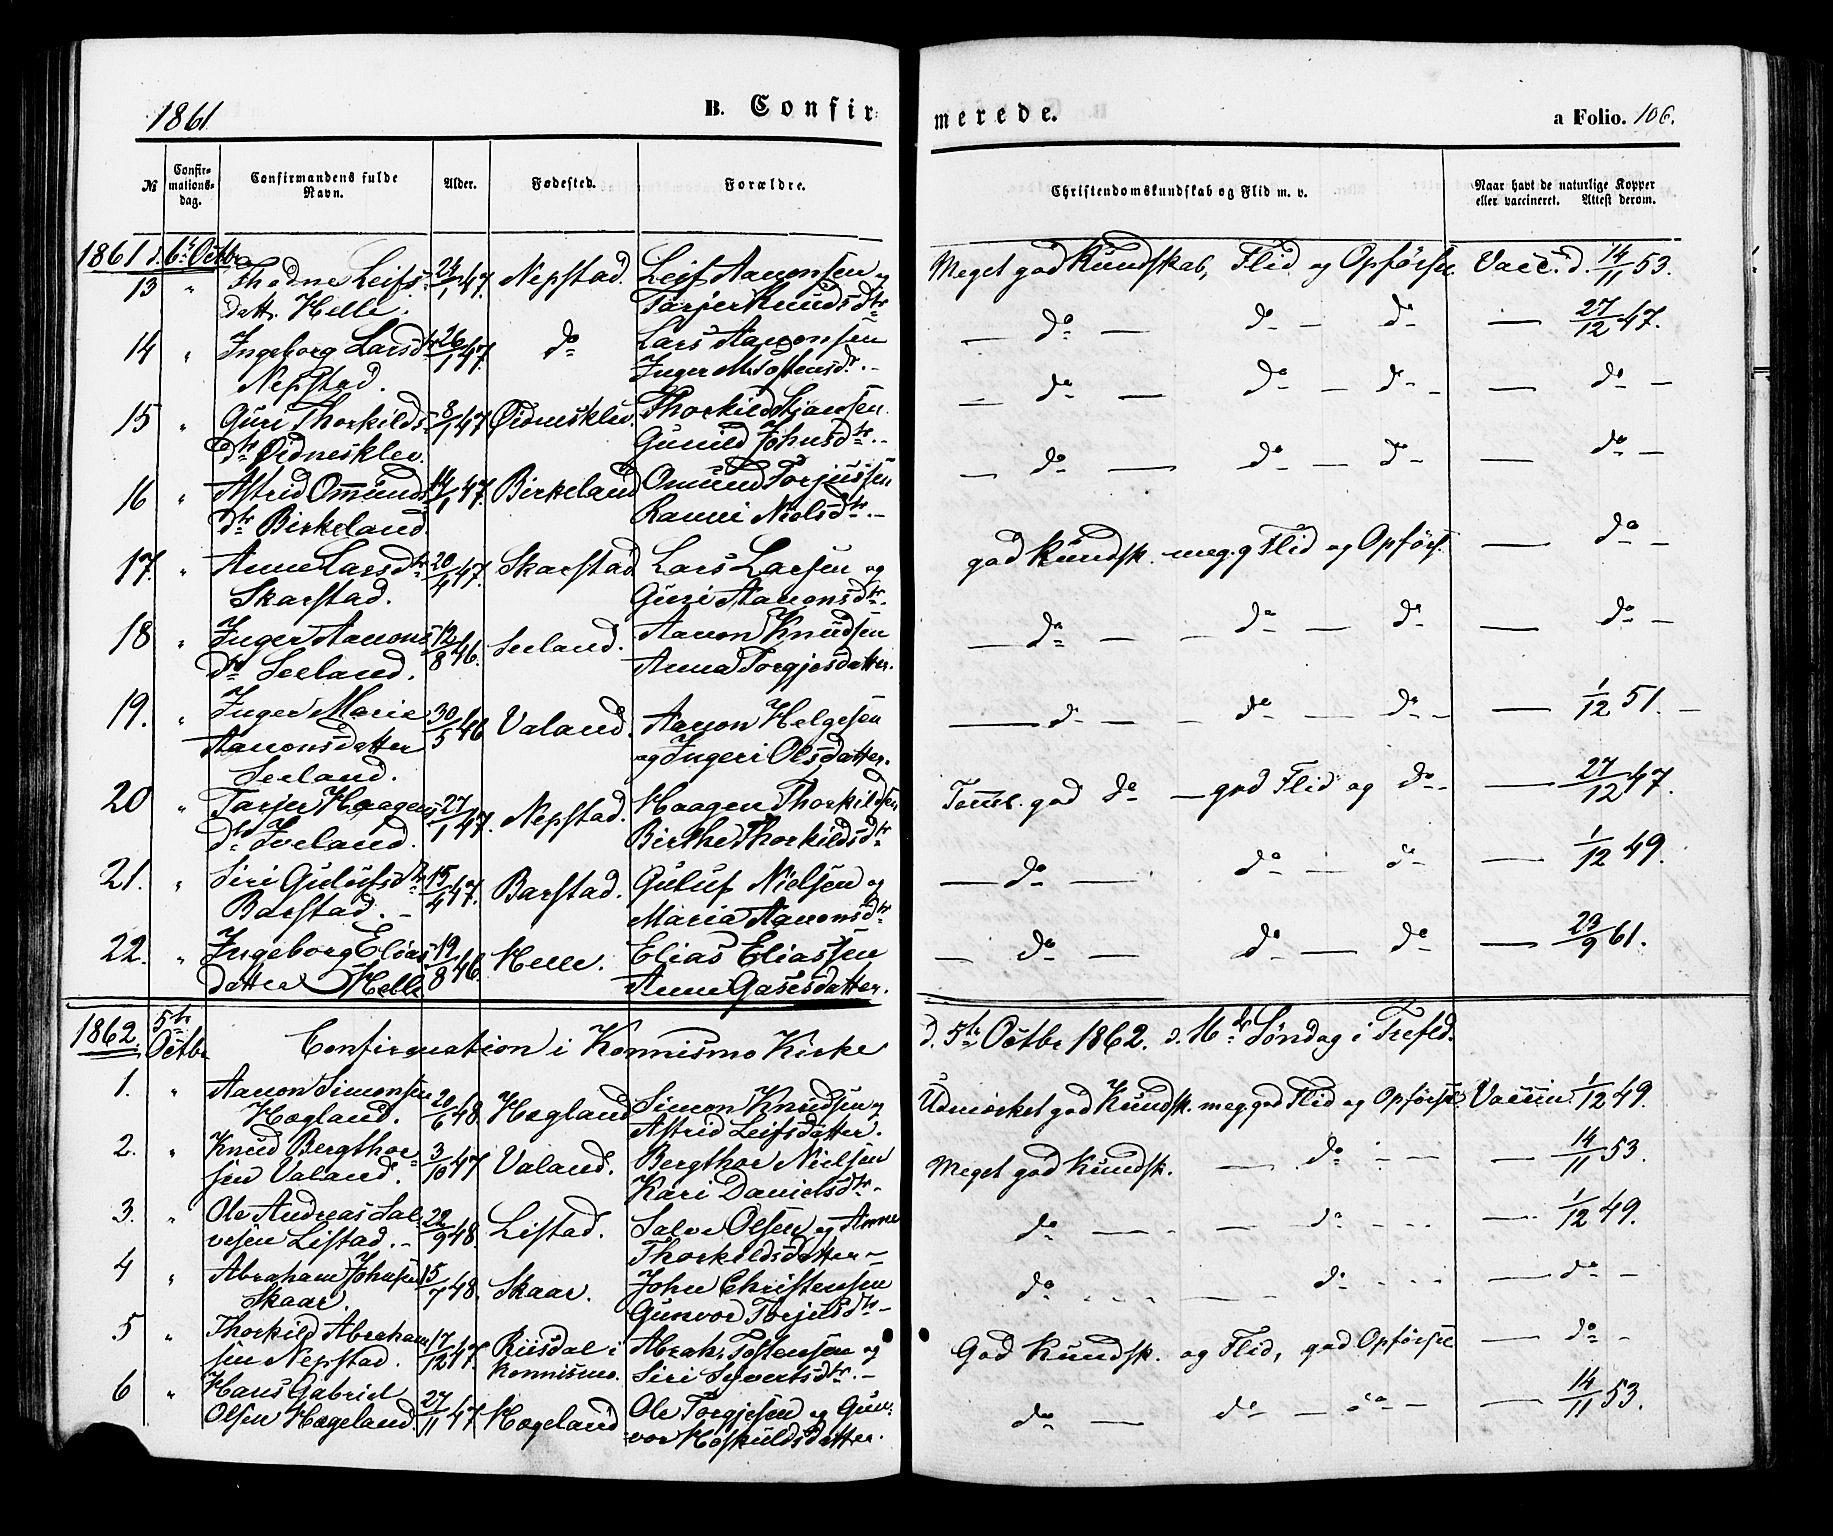 1861 B. Confirmerede. a Folio. 106.
№ Confirmations-dag. Confirmandens fulde Navn. Alder. Fødested. Forældre. Christendomskundskab og Flid m. v. Naar havt de naturlige Kopper eller vaccineret. Attest derom.
1861 d. 6te Octbr
13 " Thodne Leifs- 24/1 47. Nepstad. Leif Aanonsen og Meget god Kundskab, Flid og Opførsel Vacc. d. 14/11 53.
datt. Helle. Tarjer Knudsdtr
14 " Ingeborg Larsdtr 26/1 47. do Lars Aanonsen — do — do — do — 27/12 47.
Nepstad. Inger M. Tostensdr. —
15 " Guri Thorkilds- 8/1 47. Øidnesklev. Thorkild Stiansen. — do — do — do — — do —
dtr Øidnesklev. Gunild Johnsdtr. —
16 " Astrid Ommunds- 14/1 47. Birkeland Omund Torjussen — do — do — do — — do —
dtr Birkeland. Ranni Nielsdtr. —
17. " Anne Larsdtr 20/4 47. Skarstad Lars Larsen og god Kundsk. meg. g Flid og Opførs. — do —
Skarstad. Guri Aanonsdtr.
18 " Inger Aanons- 12/8 46. Seeland. Aanon Knudsen — do — — do — do — — do —
dtr Seeland. Anna Torgjesdatter.
19. " Inger Marie 30/5 46 Valand. Aanon Helgesen — do — — do — do — — 1/12 51. —
Aanonsdatter og Ingeri Olsdatter.
Seeland.
20 " Tarjer Haagens- 27/1 47. Nepstad. Haagen Thorkildsen Temml. god do — god Flid og do — — 27/12 47.
dtr Iveland. Birthe Thorkildsdtr
21. " Siri Gulufsdtr 15/4 47. Barstad. Guluf Nielsen og — do — do — do — — 1/12 49.
Barstad. — Maria Aanonsdtr
22. " Ingeborg Elias- 19/8 46. Helle. Elias Eliassen — do — do — do — 23/9 61.
datter Helle Anne Gasesdatter.
1862. 5te Octbr Confirmation i Konnismo Kirke d. 5te Octbr 1862. d. 16de Søndag i Trefld.
1. " Aanon Simonsen 20/6 48. Hægland Simon Knudsen og Udmærket god Kundsk. meg. god Flid og Opførsel Vaccin 1/12 49.
Hægland. Astrid Leifsdatter.
2. " Knud Bergthor- 3/10 47 Valand. Bergthor Nielsen Meget god Kundsk. — do — — — 14/11 53.
sen Valand. Kari Danielsdtr —
3. " Ole Andreas Sal- 22/9 48. Listad. Salve Olsen og Anne do — — — do — — — 1/12 49.
vesen Listad. — Thorkildsdatter —
4 " Abraham Johnsen 15/7 48. Skaar. John Christensen do — — — do — — — do —
Skaar. Gunvor Torjusdtr —
5 " Thorkild Abraham- 17/12 47. Riisdal i Abrah. Tostensen og God Kundsk. og Flid, god Opførsel — do —
sen Nepstad. Konnismo. Siri Syvertsdtr. —
6 " Hans Gabriel 27/11 47. Hægeland Ole Torgjesen og Gun- do — do — do — — 14/11 53.
Olsen Hægeland. vor Høskuldsdatter.